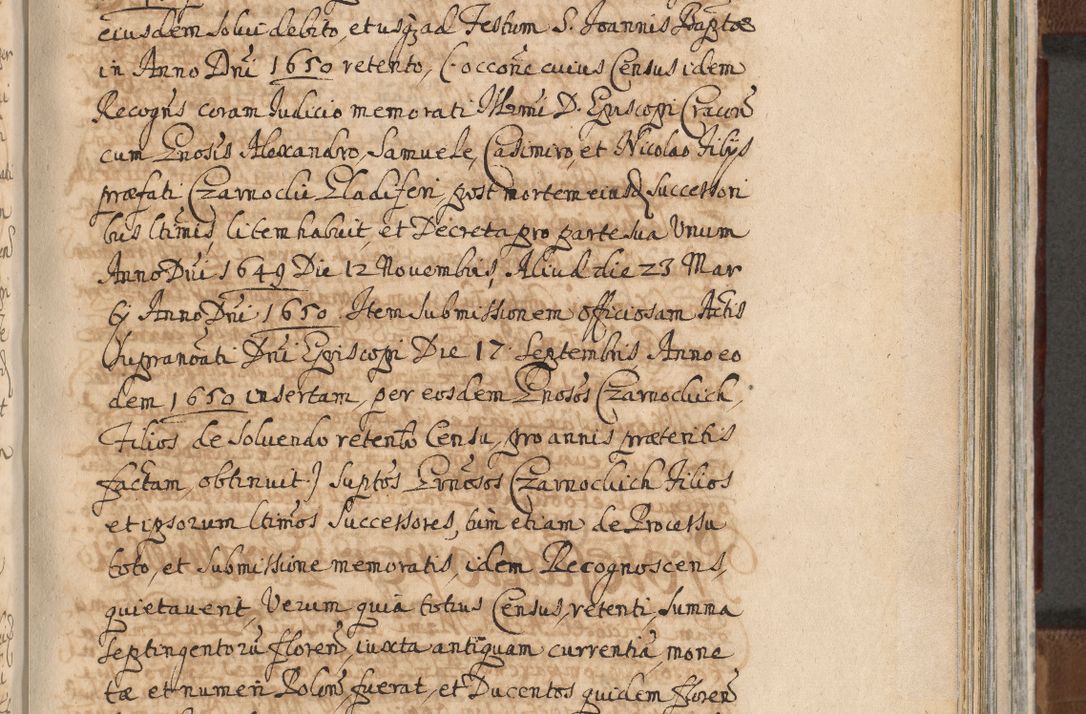 eiusdem solui debito, et usq ad Festum S. Joannis Baptæ
in Anno Dni 1650 retento, (occone cuius Census idem
Recogns coram Judicio memorati Illrmi D. Episcopi Cracoñ
cum Gnosis Alexandro, Samuele, Casimiro, et Nicolao Filijs
præfati Czarnoclii Gladiferi, post mortem eiusq successori
bus ltimis, litem habuit, et Decreta pro parte sua Unum
Anno Dni 1649 Die 12 Novembris, Aliud die 23 Mar
tij Anno Dni 1650. Item submissionem officiosam Actis
supranoati Dni Episcopi Die 17 Septembris Anno eo
dem 1650 insertam, per eosdem Gnosos Czarnockich,
Filios de solvendo retento Censu, pro annis præteritis
factam, obtinuit) suptos Grnosos Czarnockich Filios
et ipsorum ltimos Successores, tum etiam de Processu
toto, et submissione memoratis, idem Recognoscens,
quietaverit, Verum quia totius Census, retenti, summa
septingentorũ floreñ, iuxta antiquam currentiã, mone
tæ et numeri Poloñ, fuerat, et Ducentos quidem floreñ